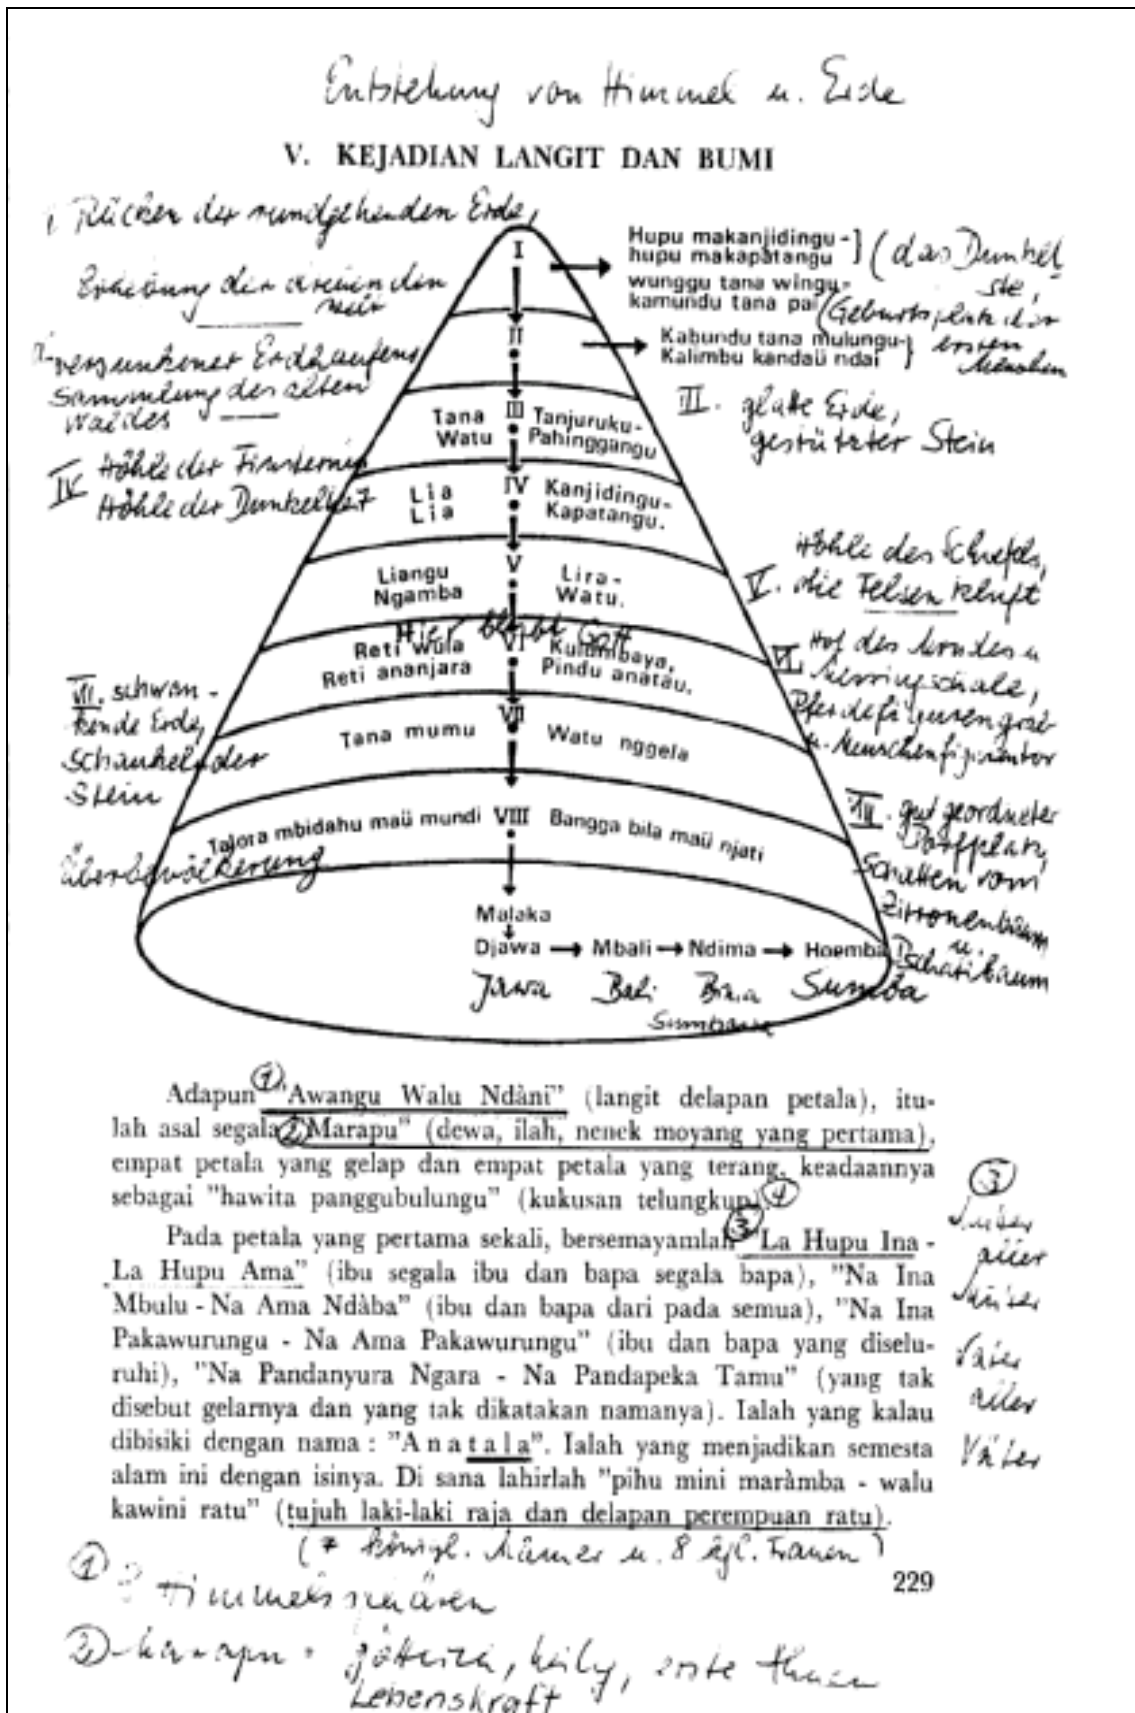 Entstehung von Himmel u. Erde
V. KEJADIAN LANGIT DAN BUMI
Rücken der rundgehenden Erde,
der
versunkener Erdhaufens
Sammlung des alten
Waldes
IV Höhle der Finsternis
Höhle der Dunkelheit
VII. schwan-
kende Erde,
schaukelnder
Stein
Überbevölkerung
I
Hupu makanjidingu-
hupu makapàtangu
wunggu tana wingu-
kamundu tana pai
(das Dunkel
ste,
(Geburtsplatz der
ersten
Menschen
II
Kabundu tana mulungu-
Kalimbu kandaü ndai
III. glatte Erde,
gestützter Stein
Tana III Tanjuruku-
Watu Pahinggangu
Lia IV Kanjidingu-
Lia Kapatangu.
Liangu V Lira-
Ngamba Watu.
Hier bleibt Gott
Reti Wula VI Kulumbaya,
Reti ananjara Pindu anatau.
VII
Tana mumu Watu nggela
Talora mbidahu maü mundi VIII Bangga bila maü njati
Höhle des Schiefels,
V. die Felsenkluft
VI. Hof des Mondes u
schale,
u. Menschenfigurentor
VIII. gut geordneter
Dorfplatz,
Schatten vom
Zitronenbaum
u.
Malaka
Djawa Mbali Ndima Hoemba
Jawa Bali Bima Sumba
Sumbawa
Adapun ① "Awangu Walu Ndàni" (langit delapan petala), itu-
lah asal segala ② "Marapu" (dewa, ilah, nenek moyang yang pertama),
empat petala yang gelap dan empat petala yang terang, keadaannya
sebagai "hawita panggubulungu" (kukusan telungkup). ④
Pada petala yang pertama sekali, bersemayamlah ③ "La Hupu Ina -
La Hupu Ama" (ibu segala ibu dan bapa segala bapa), "Na Ina
Mbulu - Na Ama Ndàba" (ibu dan bapa dari pada semua), "Na Ina
Pakawurungu - Na Ama Pakawurungu" (ibu dan bapa yang diselu-
ruhi), "Na Pandanyura Ngara - Na Pandapeka Tamu" (yang tak
disebut gelarnya dan yang tak dikatakan namanya). Ialah yang kalau
dibisiki dengan nama : "Anatala". Ialah yang menjadikan semesta
alam ini dengan isinya. Di sana lahirlah "pihu mini maràmba - walu
kawini ratu" (tujuh laki-laki raja dan delapan perempuan ratu).
③
aller
Väter
aller
Väter
(7 königl. Männer u. 8 kgl. Frauen)
229
① Himmelssphären
② göttlich, heilig, erste
Lebenskraft